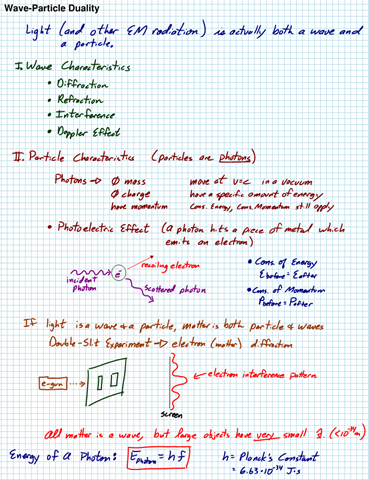 Wave-Particle Duality
Light (and other EM radiation) is actually both a wave and
a particle.
I. Wave Characteristics
• Diffraction
• Refraction
• Interference
• Doppler Effect
II. Particle Characteristics (particles are photons)
Photons → Ø mass move at v=c in a vacuum
Ø charge have a specific amount of energy
have momentum Cons. Energy, Cons. Momentum still apply
• Photoelectric Effect (a photon hits a piece of metal which
emits an electron)
recoiling electron
e-
incident
photon
scattered photon
• Cons. of Energy
Ebefore = Eafter
• Cons. of Momentum
Pbefore = Pafter
If light is a wave & a particle, matter is both particle & waves
Double-Slit Experiment → electron (matter) diffraction
e-gun
electron interference pattern
screen
All matter is a wave, but large objects have very small λ. (<10⁻³⁴m)
Energy of a Photon: Ephoton = hf h = Planck's Constant
= 6.63·10⁻³⁴ J·s